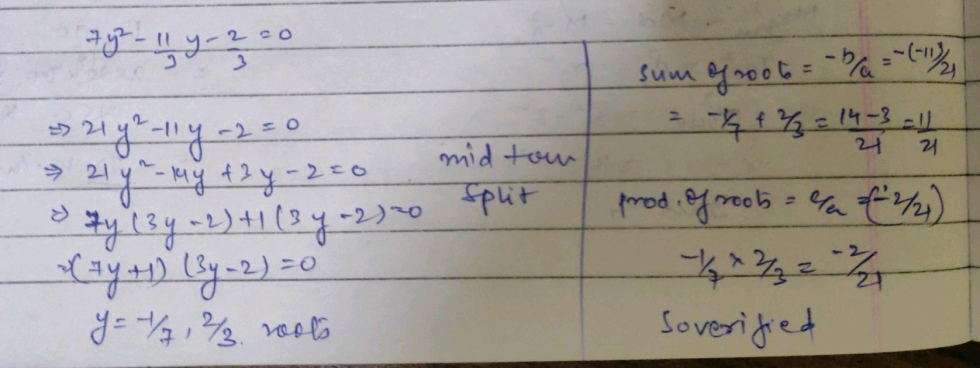 7y² - 11/3 y - 2/3 = 0
⇒ 21y² - 11y - 2 = 0
⇒ 21y² - 14y + 3y - 2 = 0
mid term
split
⇒ 7y(3y-2)+1(3y-2)=0
(7y+1) (3y-2) = 0
y = -1/7, 2/3. roots
sum of roots = -b/a = -(-11)/21
= -1/7 + 2/3 = 14-3/21 = 11/21
prod. of roots = c/a = (-2/21)
-1/7 × 2/3 = -2/21
So verified